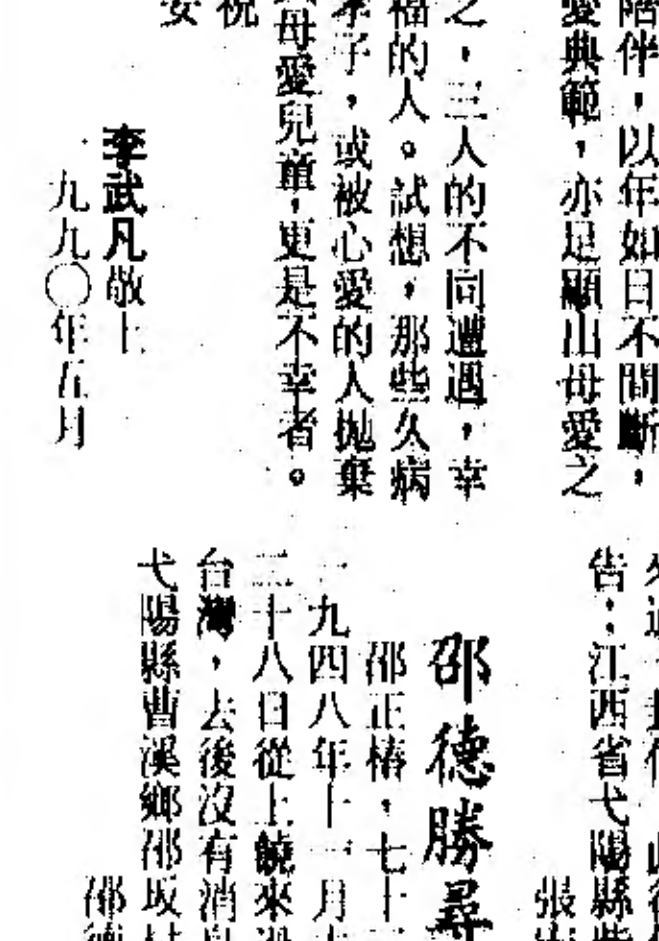 陪伴，以年如日不間斷，
愛典範，亦足顯出母愛之
之，三人的不同遭遇，幸
福的人。試想，那些久病
孝子，或被心愛的人拋棄
母愛兒童，更是不幸者。
祝
安
李武凡敬上
一九九〇年五月
告：江西省弋陽縣
張
邵德勝尋
邵正椿，七十
一九四八年十一月
二十八日從上饒來
台灣，去後沒有消息
弋陽縣曹溪鄉邵坂村
邵德